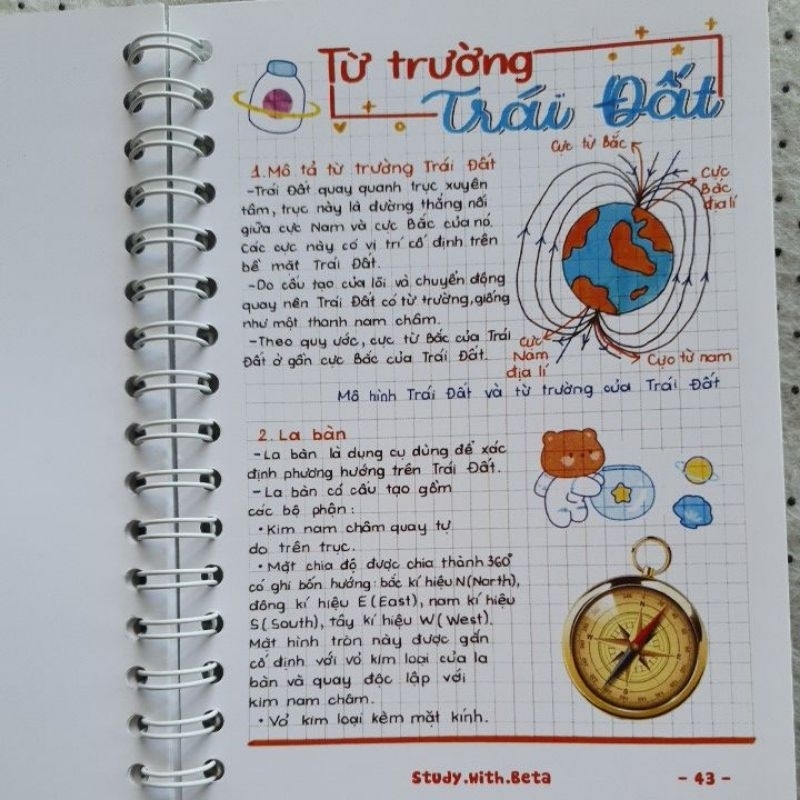 Từ trường
Trái Đất
1. Mô tả từ trường Trái Đất
-Trái Đất quay quanh trục xuyên
tâm, trục này là đường thẳng nối
giữa cực Nam và cực Bắc của nó.
Các cực này có vị trí cố định trên
bề mặt Trái Đất.
-Do cấu tạo của lõi và chuyển động
quay nên Trái Đất có từ trường, giống
như một thanh nam châm.
-Theo quy ước, cực từ Bắc của Trái
Đất ở gần cực Bắc của Trái Đất.
Cực từ Bắc
Cực
Bắc
địa lí
Cực
Nam
địa lí
Cực từ nam
Mô hình Trái Đất và từ trường của Trái Đất
2. La bàn
-La bàn là dụng cụ dùng để xác
định phương hướng trên Trái Đất.
-La bàn có cấu tạo gồm
các bộ phận:
•Kim nam châm quay tự
do trên trục.
•Mặt chia độ được chia thành 360°
có ghi bốn hướng: bắc kí hiệu N(North),
đông kí hiệu E(East), nam kí hiệu
S(South), tây kí hiệu W(West).
Mặt hình tròn này được gắn
cố định với vỏ kim loại của la
bàn và quay độc lập với
kim nam châm.
•Vỏ kim loại kèm mặt kính.
Study.with.Beta
- 43 -